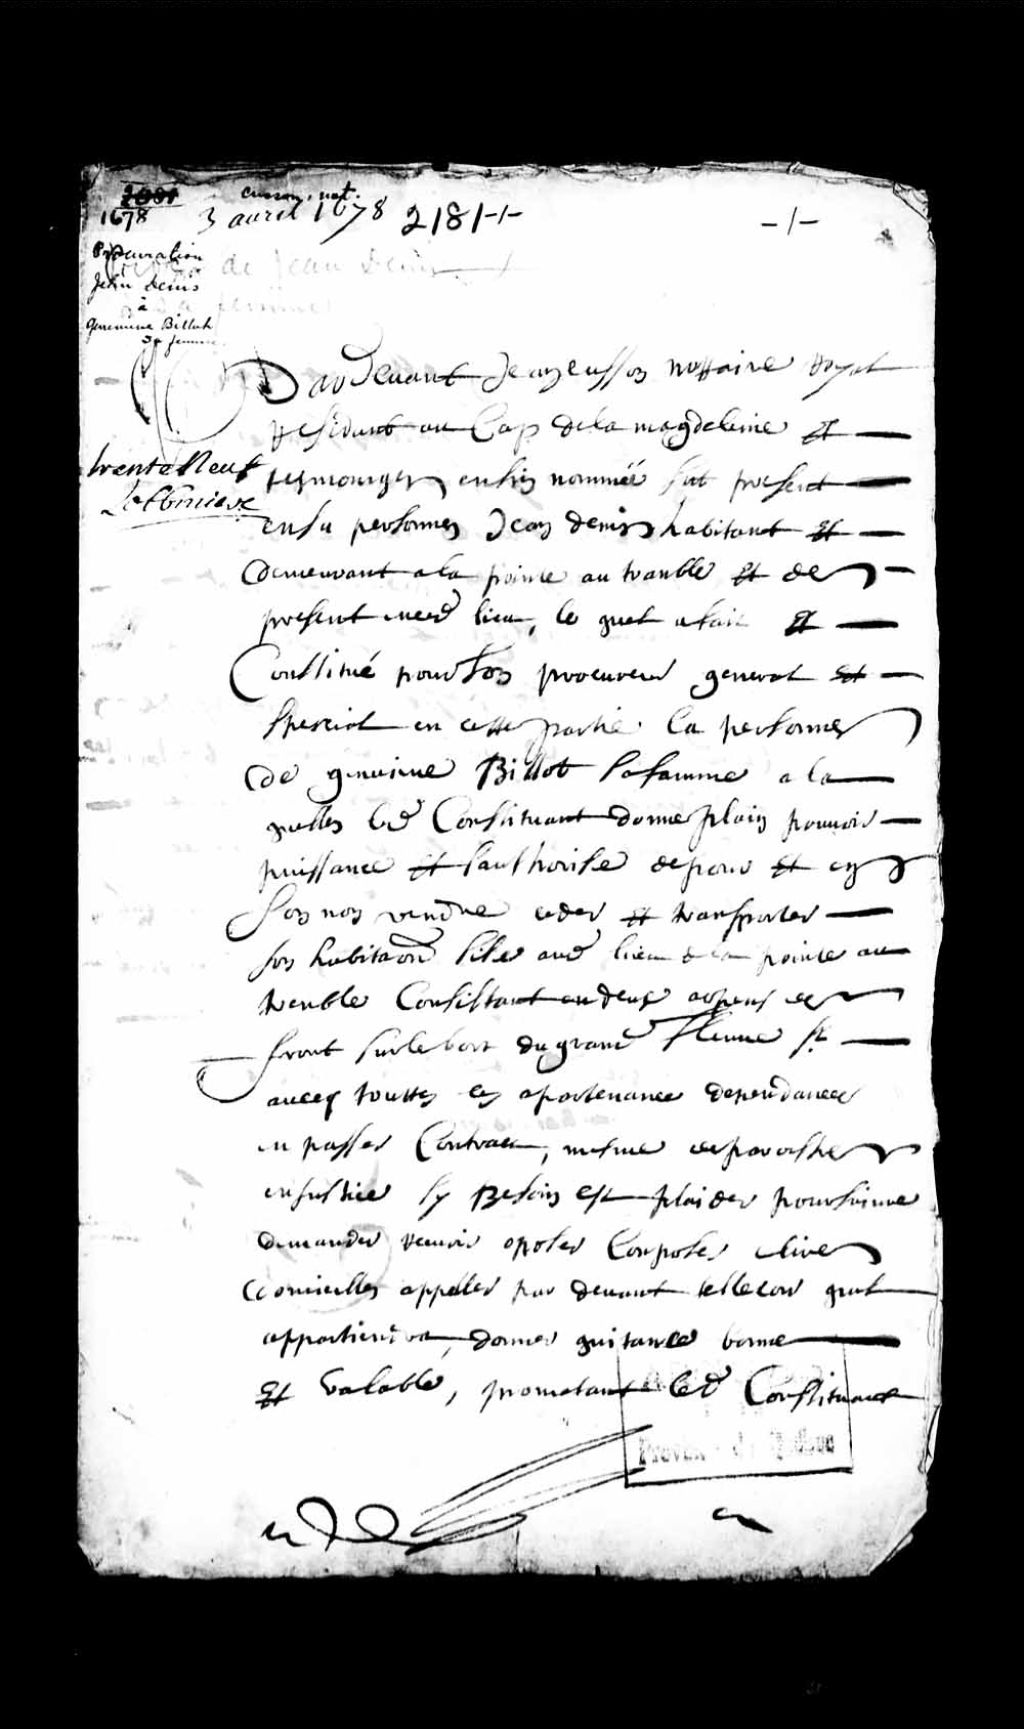 1678
cusson, not.
3 avril 1678 2181-/-
-/-
Procuration
Jean Denis
à
Genevieve Billot
sa femme
de Jean Denis
trente Neuf
Pardevant Jean cusson nottaire Royal
residant au Cap de la magdelaine Et
tesmoings en fin nommés fut present
en sa personne Jean denis habitant Et
demeurant a la pointe au tramble Et de
present aud lieu, le quel a fait Et
Constitué pour son procureur general Et
special en cette partie la personne
de genvieve Billot sa famme a la
quelle led Constituant donne plain pouvoir
puissance Et l'authorise de pour Et en
son non vendre ceder Et transporter
son habitaon size aud lieu de la pointe au
tremble Consistant en deux arpens de
front sur le bort du grand fleuve St
avecq touttes ces apartenance dependances
en passer Contract, mesme de paroistre
en justice sy Besoin est plaider poursuivre
demander renvoir oposer Composer elire
domicilles appeller par devant telle cour quil
appartiendra, donner quitance bonne
Et Valable, prometant led Constituant
Province de Québec